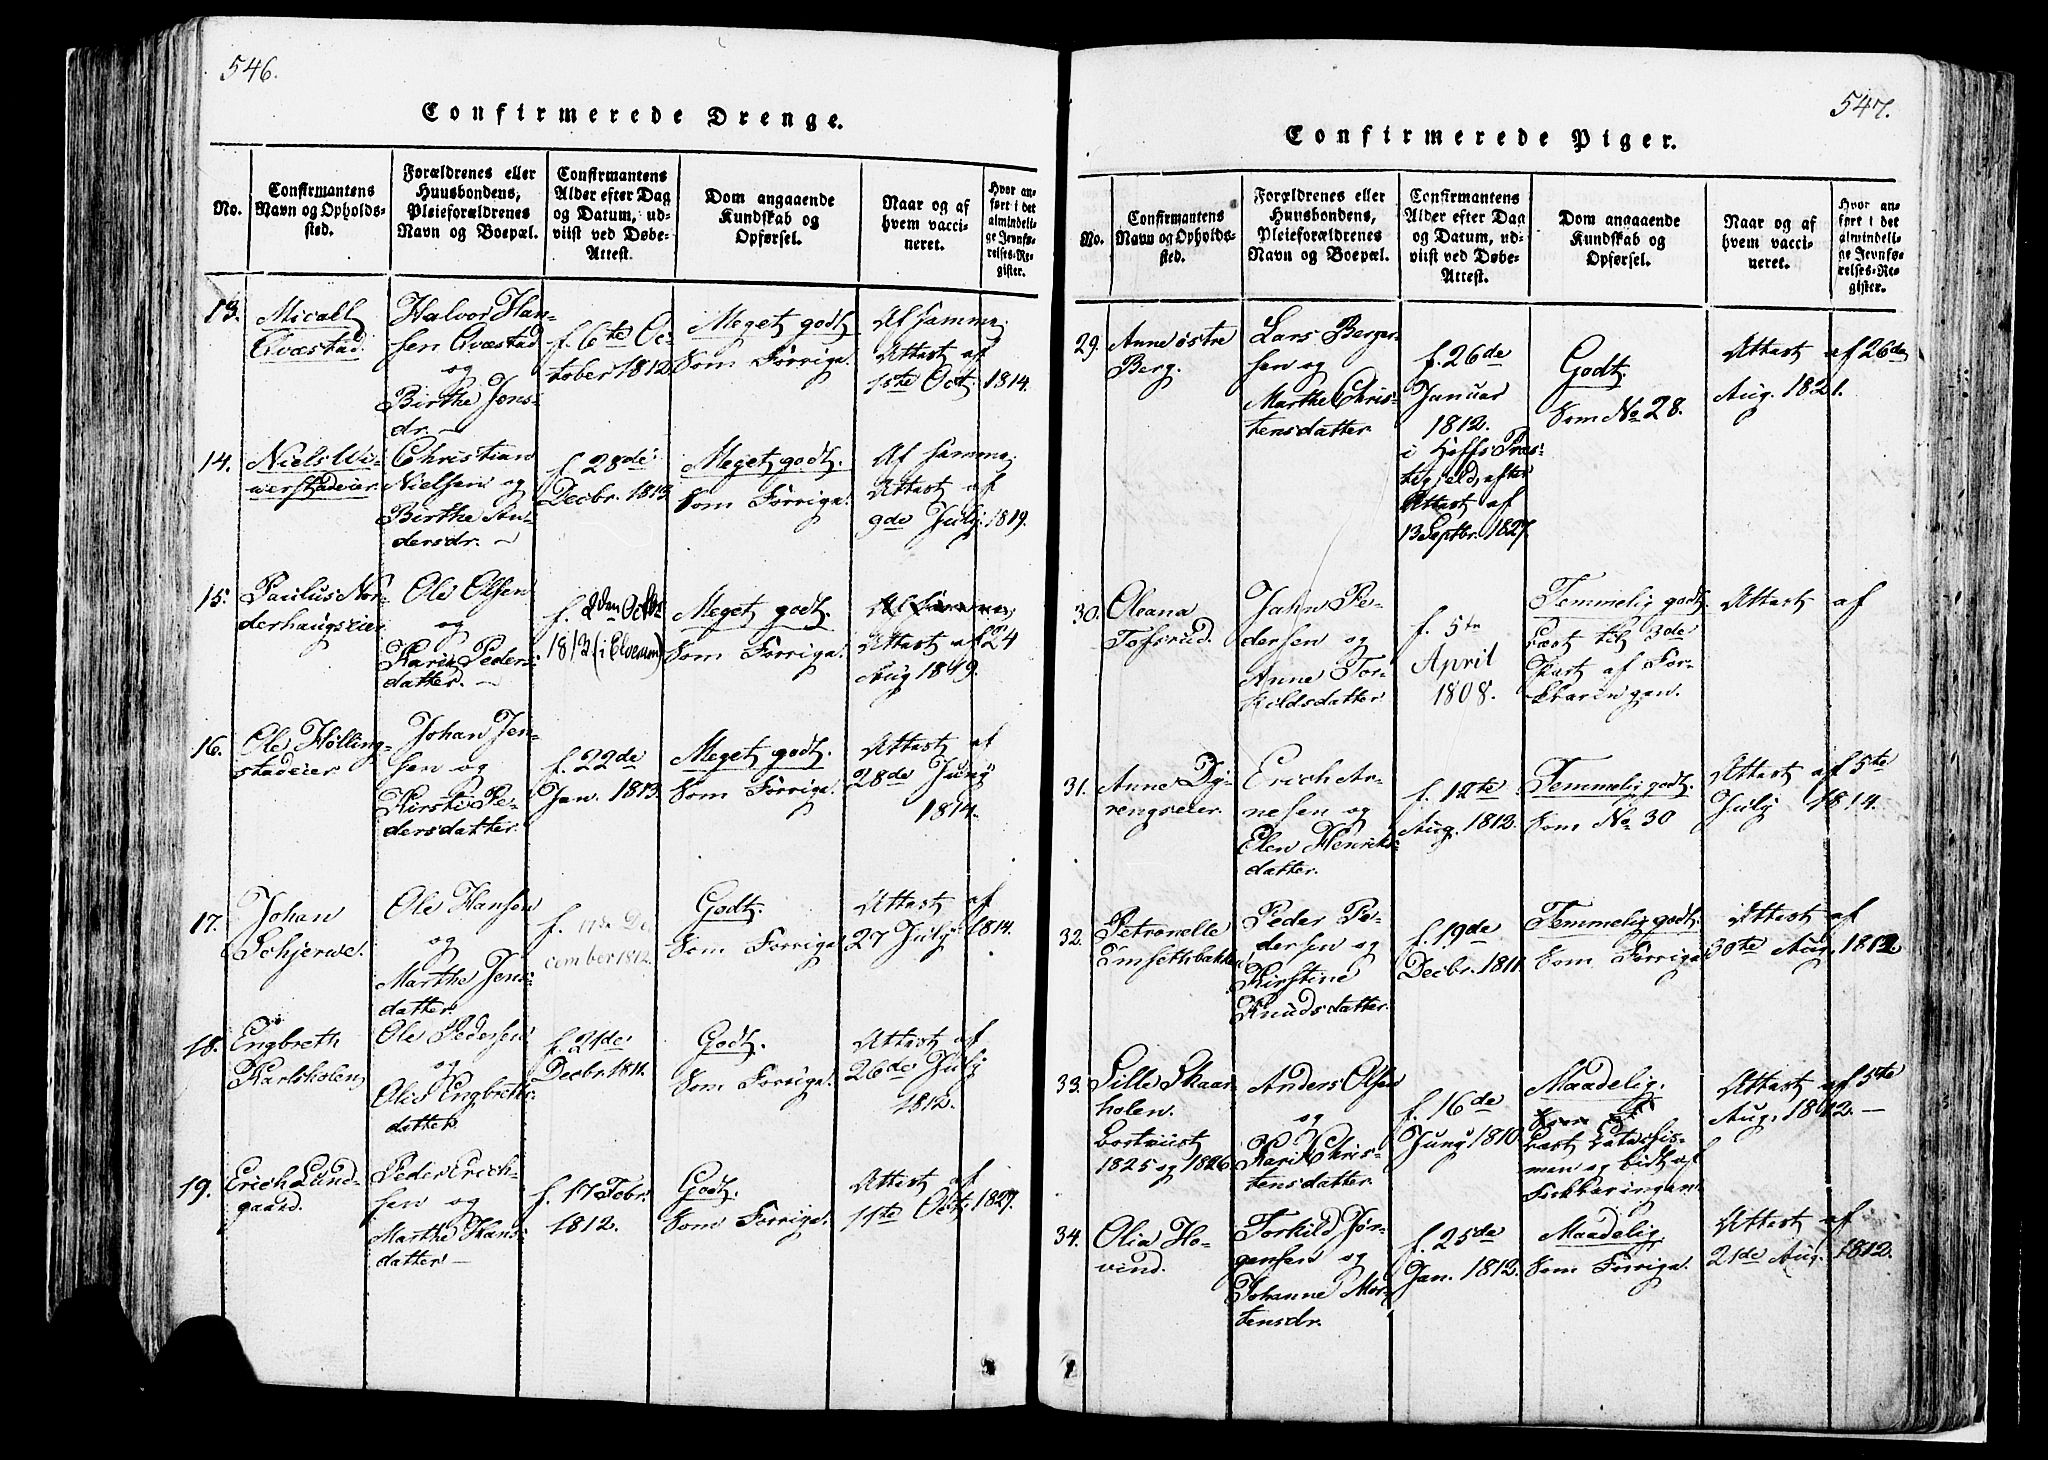 546.
Confirmerede Drenge.
No.
Confirmantens
Navn og Opholds-
sted.
Forældrenes eller
Huusbondens,
Pleieforældrenes
Navn og Boepæl.
Confirmantens
Alder efter Dag
og Datum, ud-
viist ved Døbe-
Attest.
Dom angaaende
Kundskab og
Opførsel.
Naar og af
hvem vacci-
neret.
Hvor an-
ført i det
almindeli-
ge Jevnfø-
relses-Re-
gister.
13.
Micael
Qvæstad.
Halvor Han-
sen Qvæstad
og
Birthe Jens-
dr. —
f. 6te Oc-
tober 1812.
Meget godt
Som Forrige.
Af samme,
Attest af
1ste Oct. 1814.
14.
Niels
Christian
Nielsen og
Birthe An-
dersdr. —
f. 28de
Decbr. 1813.
Meget godt.
Som Forrige.
Af samme,
Attest af
9de July 1819.
15.
Paulus Nor-
derhaugseier
Ole Olsen
og
Kari Peders-
datter. —
f. 2den Octbr
1813 (i Elverum)
Meget godt.
Som Forrige.
Af samme,
Attest af 24
Aug 1819.
16.
Ole Hølling-
stadeier.
Johan Jen-
sen og
Kirsti Pe-
dersdatter.
f. 22de
Jan. 1813.
Meget godt.
Som Forrige.
Attest af
28de Juny
1814.
17.
Johan
Schjerve.
Ole Hansen
og
Marthe Jens-
datter.
f. 11te De
cember 1812.
Godt.
Som Forrige
Attest af
27 July 1814.
18.
Engbreth
Karlsholen
Ole Pedersen
og
Olea Engbreths-
datter.
f. 21de
Decbr. 1811.
Godt.
Som Forrige.
Attest af
26de July
1812.
19.
Erich Lund-
gaard.
Peder Erich-
sen og
Marthe Hans-
datter —
f. 17 Febr.
1812.
Godt.
Som Forrige.
Attest af
11te Oct. 1827.
547.
Confirmerede Piger.
No.
Confirmantens
Navn og Opholds-
sted.
Forældrenes eller
Huusbondens,
Pleieforældrenes
Navn og Boepæl.
Confirmantens
Alder efter Dag
og Datum, ud-
viist ved Døbe-
Attest.
Dom angaaende
Kundskab og
Opførsel.
Naar og af
hvem vacci-
neret.
Hvor an-
ført i det
almindeli-
ge Jevnfø-
relses-Re-
gister.
29.
Anne østre
Berg.
Lars Berger-
sen og
Marthe Chris-
tensdatter
f. 26de
Januar
1812.
i Høffs Præs-
tegjeld, efter
Attest af
13 Septbr. 1827.
Godt.
Som No 28.
Attest af 26de
Aug. 1821.
30.
Oleana
Tofsrud.
Jahn Pe-
dersen og
Anne Tor-
kildsdatter
f. 5te
April
1808.
Temmelig godt
Læst til 3de
Part af For-
klaringen.
Attest af
31.
Anne Dy-
rengseier.
Erich Ar-
nesen og
Elen Henriks-
datter.
f. 12te
Aug. 1812.
Temmelig godt.
Som No 30
Attest af 5te
July 1814.
32.
Petronelle
Emsethbakken
Peder Pe-
dersen og
Kirstine
Knudsdatter.
f. 19de
Decbr. 1811.
Temmelig godt.
Som Forrige
Attest af
30te Aug. 1812
33.
Sille Skaar-
holen.
bortviist
1825 og 1826
Anders Olsen
og
Kari Chris-
tensdatter.
f. 16de
Juny 1810.
Maadelig.
Læst Catechis-
men og lidt af
Forklaringen.
Attest af 5te
Aug. 1812. —
34.
Olia Ho-
vind.
Torkild Jør-
gensen og
Johanne Mor-
tensdr.
f. 25de
Jan. 1812.
Maadelig.
Som Forrige.
Attest af
21de Aug. 1812.